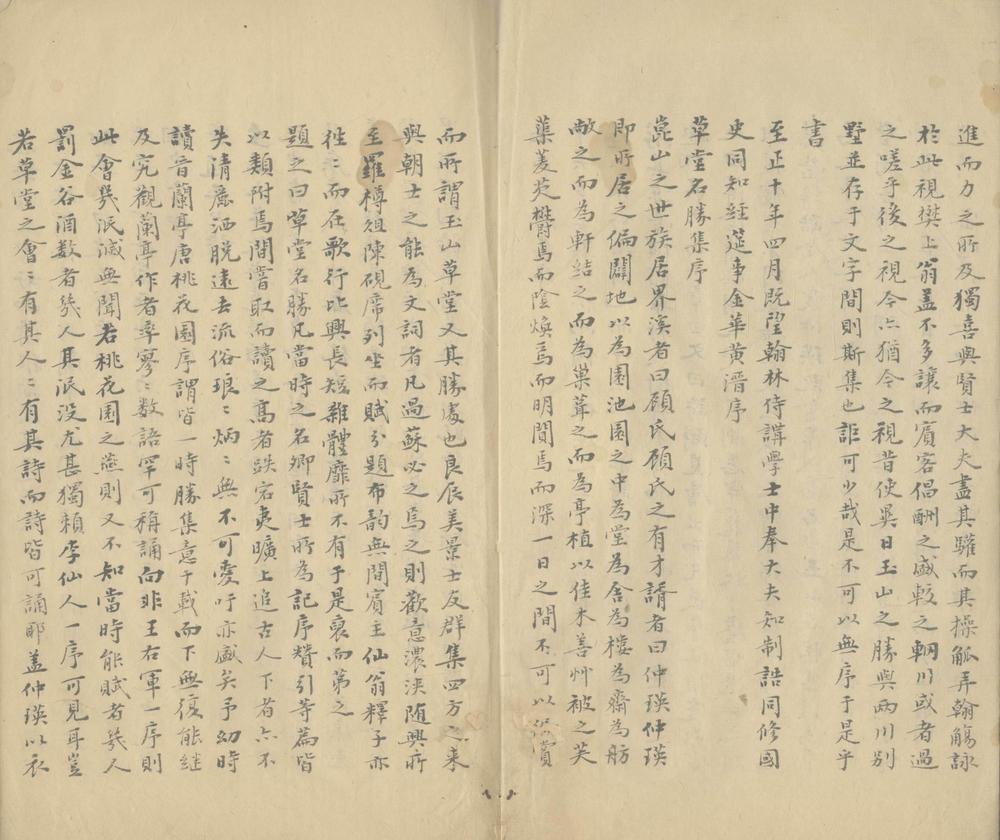 進而力之所及獨喜與賢士大夫盡其驩而其操觚弄翰觴詠
於此視樊上翁盖不多讓而賓客倡酬之盛較之輞川或者過
之嗟乎後之視今亦猶今之視昔使異日玉山之勝與兩川別
墅並存于文字間則斯集也詎可少哉是不可以無序于是乎
書
至正十年四月既望翰林侍講學士中奉大夫知制誥同修國
史同知經筵事金華黃溍序
草堂名勝集序
崑山之世族居界溪者曰顧氏顧氏之有才諝者曰仲瑛仲瑛
即所居之偏闢地以為園池園之中為堂為舍為樓為齋為舫
敞之而為軒結之而為巢葺之而為亭植以佳木善艸被之芙
蕖菱芡鬱焉而陰煥焉而明閴焉而深一日之間不可以徧賞
而所謂玉山草堂又其勝處也良辰美景士友群集四方之來
與朝士之能為文詞者凡過蘇必之焉之則歡意濃浹随興所
至羅樽俎陳硯席列坐而賦分題布韵無間賓主仙翁釋子亦
徃〻而在歌行比興長短雜體靡所不有于是裒而第之
題之曰草堂名勝凡當時之名卿賢士所為記序贊引等篇皆
以類附焉間嘗取而讀之髙者跌宕夷曠上追古人下者亦不
失清麗洒脱遠去流俗琅〻炳〻無不可愛吁亦盛矣予幼時
讀晋蘭亭唐桃花園序謂皆一時勝集意千載而下無復能継
及究觀蘭亭作者率寥〻数語罕可稱誦向非王右軍一序則
此會㡬泯滅無聞若桃花園之燕則又不知當時能賦者㡬人
罰金谷酒数者㡬人其泯没尤甚獨頼李仙人一序可見耳豈
若草堂之會〻有其人〻有其詩而詩皆可誦耶盖仲瑛以衣